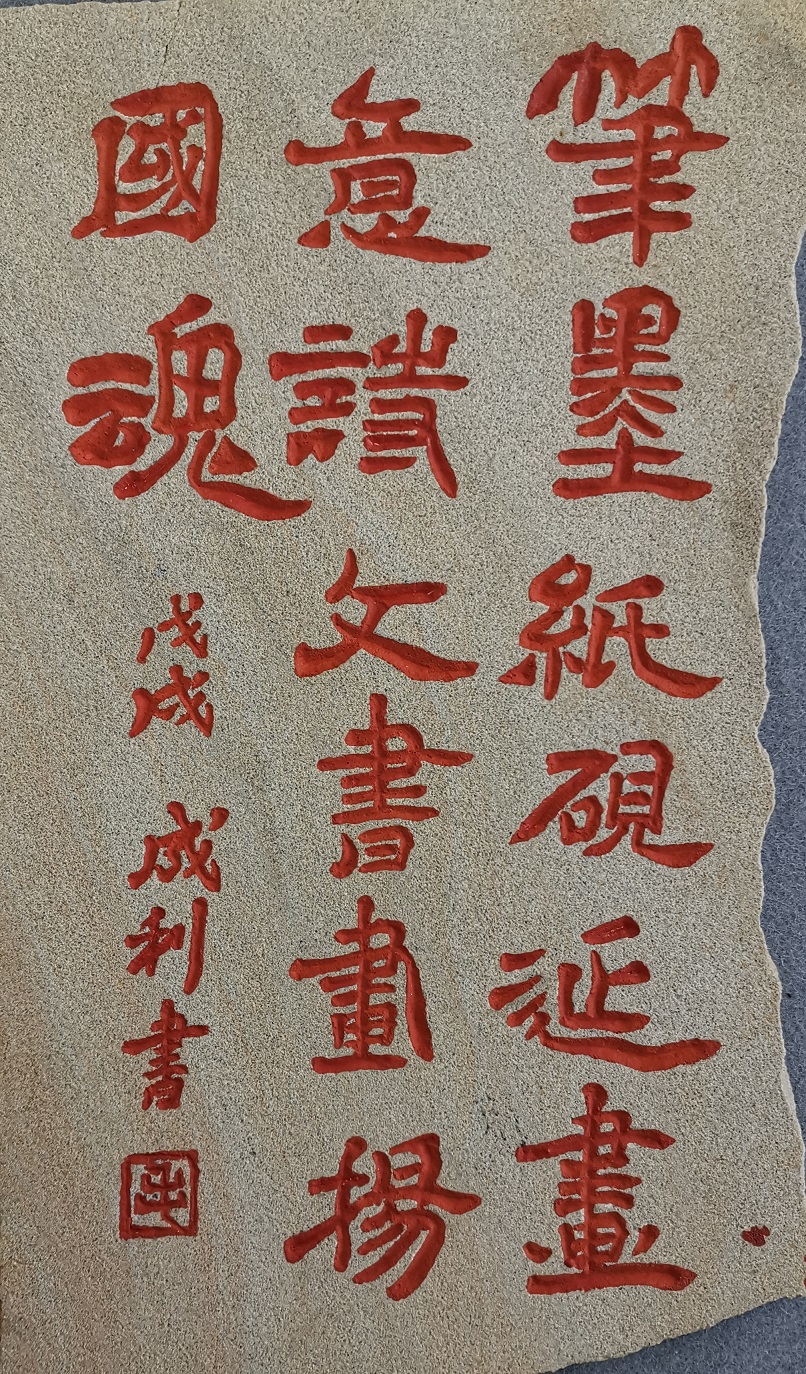 筆墨紙硯延畫
意詩文書畫揚
國魂
戊戌 成利書